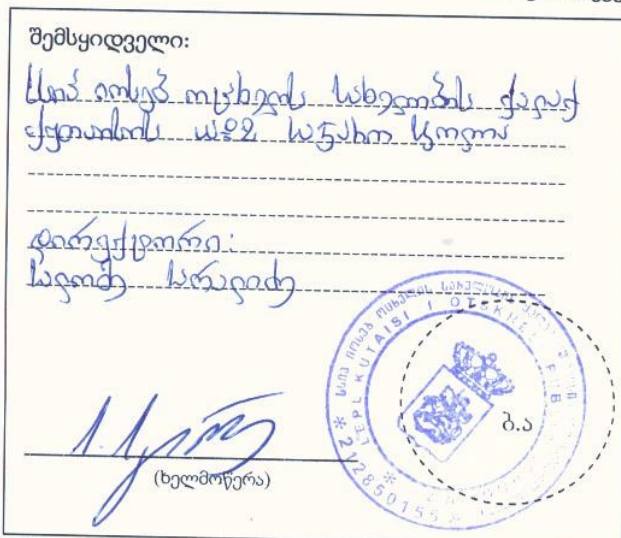 შემსყიდველი:
სსიპ იოსებ ოცხელის სახელობის ქალაქ
ქუთაისის №2 საჯარო სკოლა
დირექტორი:
სალომე სარალიძე
ბ.ა
(ხელმოწერა)
LEPL KUTAISI I OTSKHELI PUB
212850155